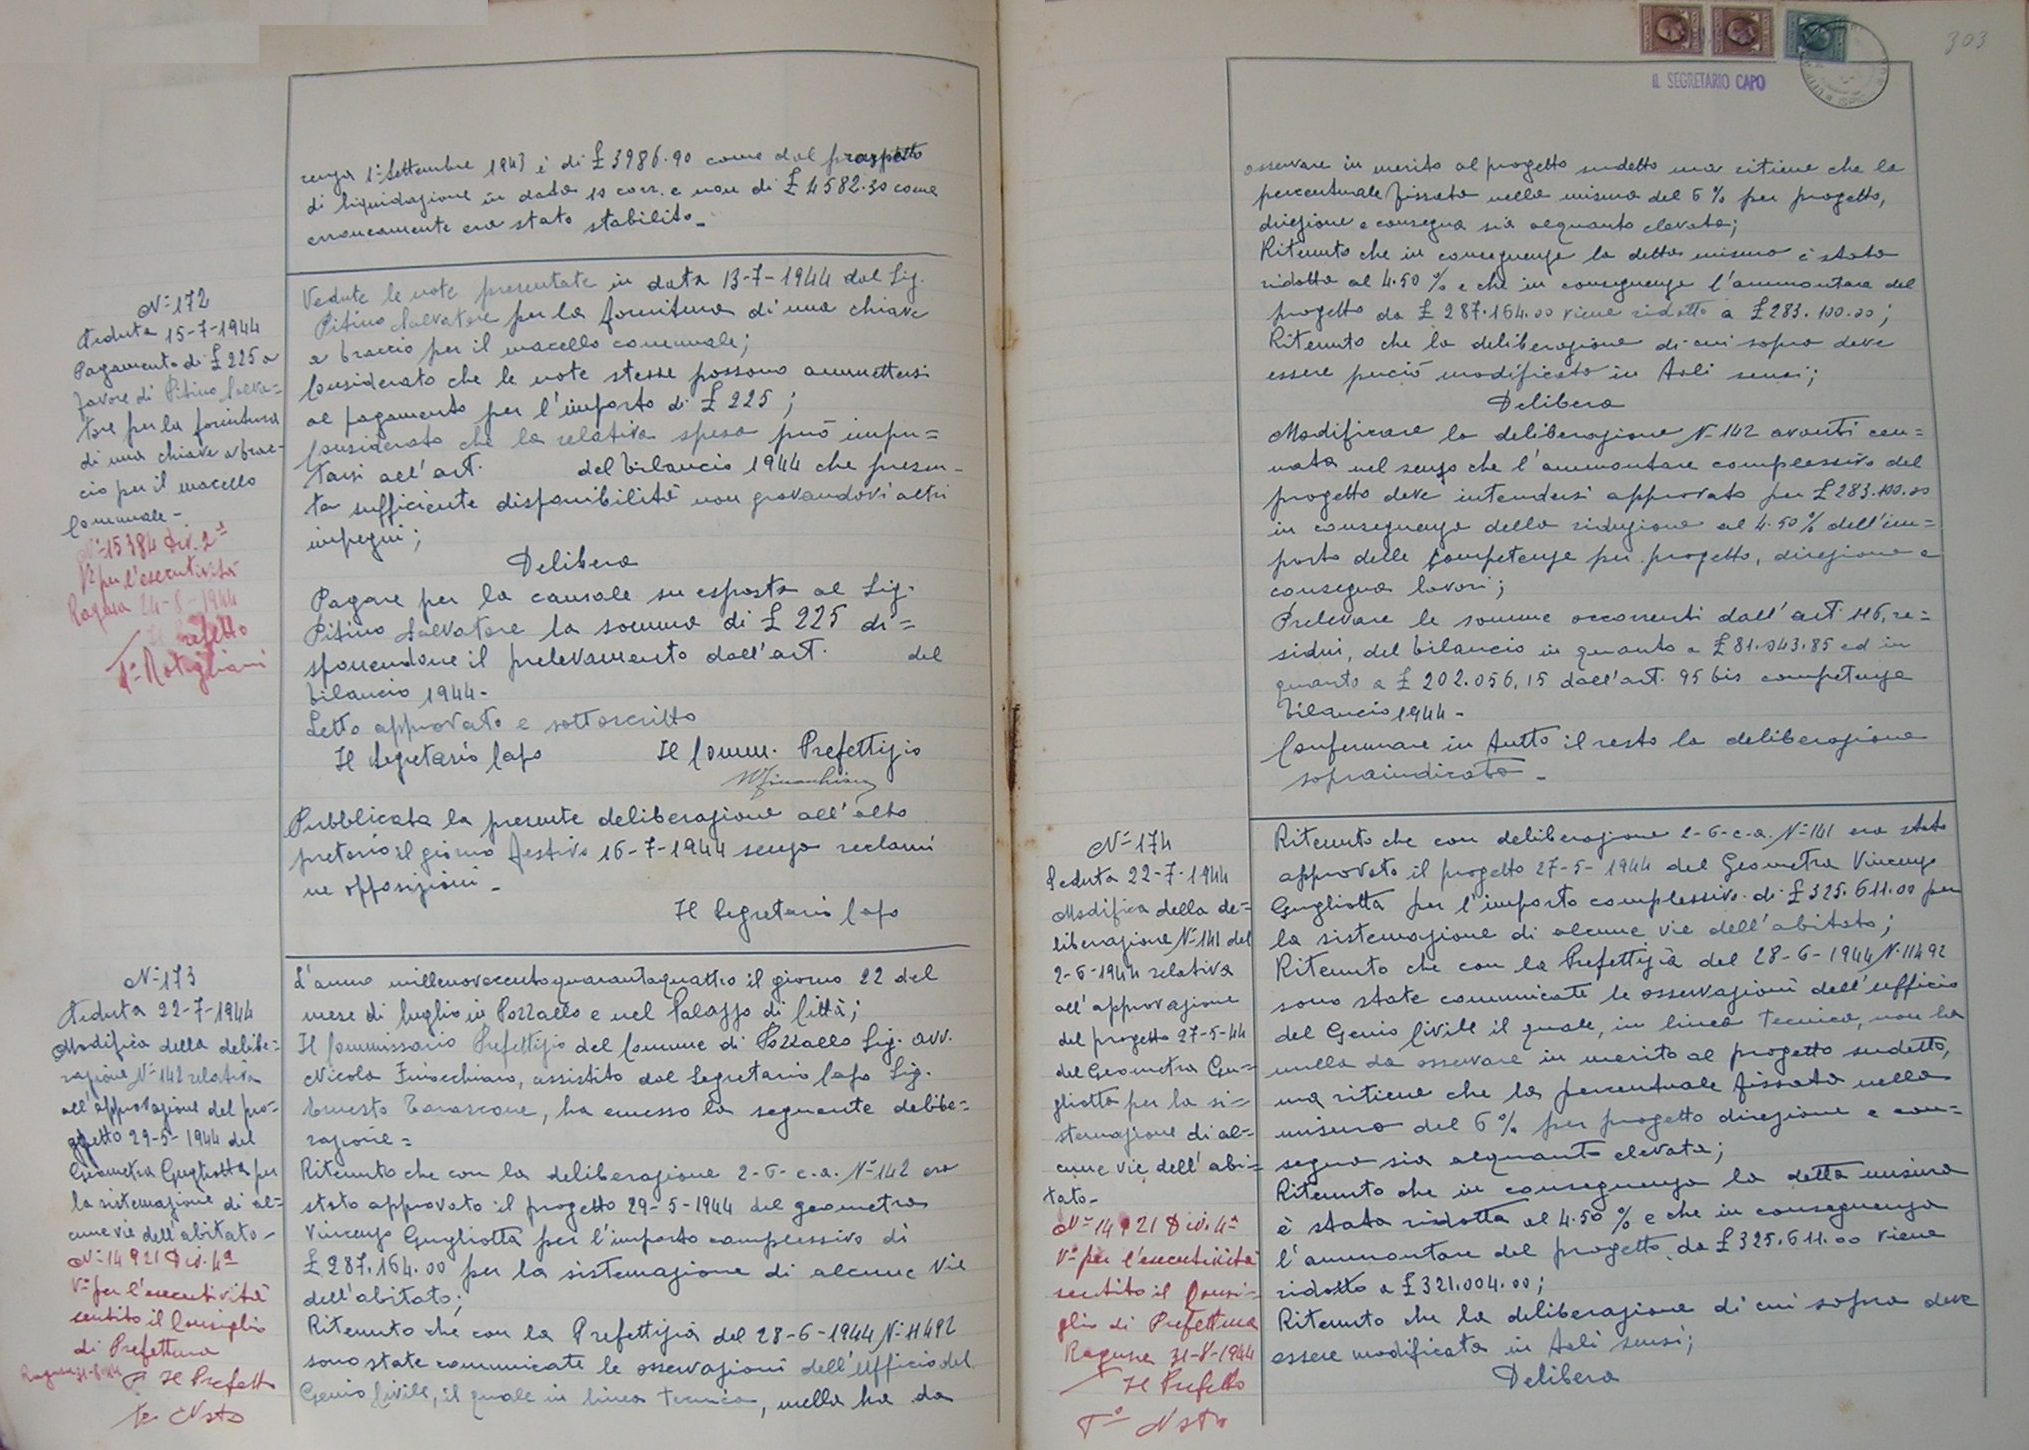 renza 1° Settembre 1943 è di £ 3986.90 come dal prospetto
di liquidazione in data 10 corr. e non di £ 4582.30 come
erroneamente era stato stabilito.-
N° 172
Seduta 15-7-1944
Pagamento di £ 225 a
favore di Pitino Salva=
tore per la fornitura
di una chiave a brac-
cio per il macello
Comunale-
N° 15384 Div. 2ª
V° per l'esecutività
Ragusa 24-8-1944
Il Prefetto
Vedute le note presentate in data 13-7-1944 dal Sig.
Pitino Salvatore per la fornitura di una chiave
a braccio per il macello comunale;
Considerato che le note stesse possono ammettersi
al pagamento per l'importo di £ 225;
Considerato che la relativa spesa può impu=
tarsi all'art. del bilancio 1944 che presen-
ta sufficiente disponibilità non gravandovi altri
impegni;
Delibera
Pagare per la causale su esposta al Sig.
Pitino Salvatore la somma di £ 225 di=
sponendone il prelevamento dall'art. del
bilancio 1944-
Letto approvato e sottoscritto
Il Segretario Capo Il Comm. Prefettizio
Pubblicata la presente deliberazione all'albo
pretorio il giorno festivo 16-7-1944 senza reclami
ne opposizioni-
Il Segretario Capo
N° 173
Seduta 22-7-1944
Modifica della delibe=
razione N° 142 relativa
all'approvazione del pro-
getto 29-5-1944 del
Geometra Gugliotta per
la sistemazione di al=
cune vie dell'abitato-
N° 14921 Div. 4ª
V° per l'esecutività
sentito il Consiglio
di Prefettura
Ragusa 31-8-1944
F° Il Prefetto
L'anno millenovecentoquarantaquattro il giorno 22 del
mese di luglio in Pozzallo e nel Palazzo di Città;
Il Commissario Prefettizio del Comune di Pozzallo Sig. avv.
Nicola Finocchiaro, assistito dal Segretario Capo Sig.
Ernesto Tarascone, ha emesso la seguente delibe=
razione=
Ritenuto che con la deliberazione 2-6-c.a. N° 142 era
stato approvato il progetto 29-5-1944 del geometra
Vincenzo Gugliotta per l'importo complessivo di
£ 287.164.00 per la sistemazione di alcune vie
dell'abitato;
Ritenuto che con la Prefettizia del 28-6-1944 N° 11492
sono state communicate le osservazioni dell'Ufficio del
Genio Civile, il quale in linea tecnica, nulla ha da
303
IL SEGRETARIO CAPO
osservare in merito al progetto sudetto ma ritiene che la
percentuale fissata nella misura del 6% per progetto,
direzione e consegna sia alquanto elevata;
Ritenuto che in conseguenza la detta misura è stata
ridotta al 4.50% e che in conseguenza l'ammontare del
progetto da £ 287.164.00 viene ridotto a £ 283.100.00;
Ritenuto che la deliberazione di cui sopra deve
essere perciò modificata in tali sensi;
Delibera
Modificare la deliberazione N. 142 avanti cen=
nata nel senso che l'ammontare complessivo del
progetto deve intendersi approvato per £ 283.100.00
in conseguenza della riduzione al 4.50% dell'im=
porto delle competenze per progetto, direzione e
consegna lavori;
Prelevare le somme occorrenti dall'art. 116, re=
sidui, del bilancio in quanto a £ 81.043.85 ed in
quanto a £ 202.056,15 dall'art. 95 bis competenza
bilancio 1944-
Confermare in tutto il resto la deliberazione
sopraindicata-
N° 174
Seduta 22-7-1944
Modifica della de=
liberazione N° 141 del
2-6-1944 relativa
all'approvazione
del progetto 27-5-44
del Geometra Gu=
gliotta per la si=
stemazione di al=
cune vie dell'abi=
tato-
N° 14921 Div. 4ª
V° per l'esecutività
sentito il Consi=
glio di Prefettura
Ragusa 31-8-1944
Il Prefetto
Ritenuto che con deliberazione 2-6-c.a. N° 141 era stato
approvato il progetto 27-5-1944 del Geometra Vincenzo
Gugliotta per l'importo complessivo di £ 325.611.00 per
la sistemazione di alcune vie dell'abitato;
Ritenuto che con la Prefettizia del 28-6-1944 N. 11492
sono state communicate le osservazioni dell'Ufficio
del Genio Civile il quale, in linea tecnica, non ha
nulla da osservare in merito al progetto sudetto,
ma ritiene che la percentuale fissata nella
misura del 6% per progetto direzione e con=
segna sia alquanto elevata;
Ritenuto che in conseguenza la detta misura
è stata ridotta al 4.50% e che in conseguenza
l'ammontare del progetto da £ 325.611.00 viene
ridotto a £ 321.004.00;
Ritenuto che la deliberazione di cui sopra deve
essere modificata in tali sensi;
Delibera